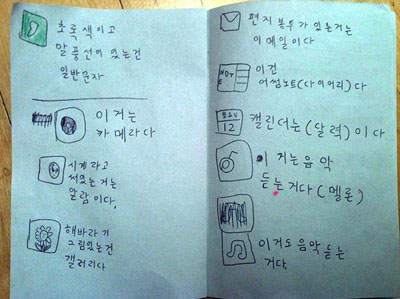 초록색이고
말풍선이 있는건
일반문자
이거는
카메라다
시계라고
써있는거는
알람이다.
해바라기
그림있는건
갤러리다
편지봉투가 있는거는
이메일이다
NOT
E
이건
어썸노트(다이어리)다
12
캘린더는(달력)이다
이거는음악
듣는거다(멜론)
이거도 음악듣는
거다.